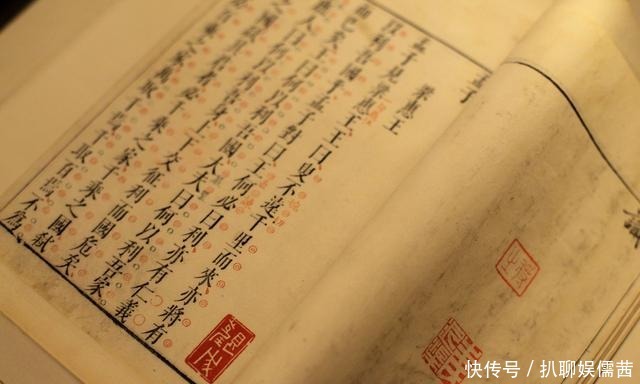 孟子
梁惠王
孟子見梁惠王王曰叟不遠千里而來亦將有
以利吾國乎孟子對曰王何必曰利亦有仁義
而已矣王曰何以利吾國大夫曰何以利吾家
庶人曰何以利吾身上下交征利而國危矣
之國弒其君者必千乘之家千乘之國弒
乘之家萬取千焉千取百焉不為
快传号 / 扒聊娱儒茜